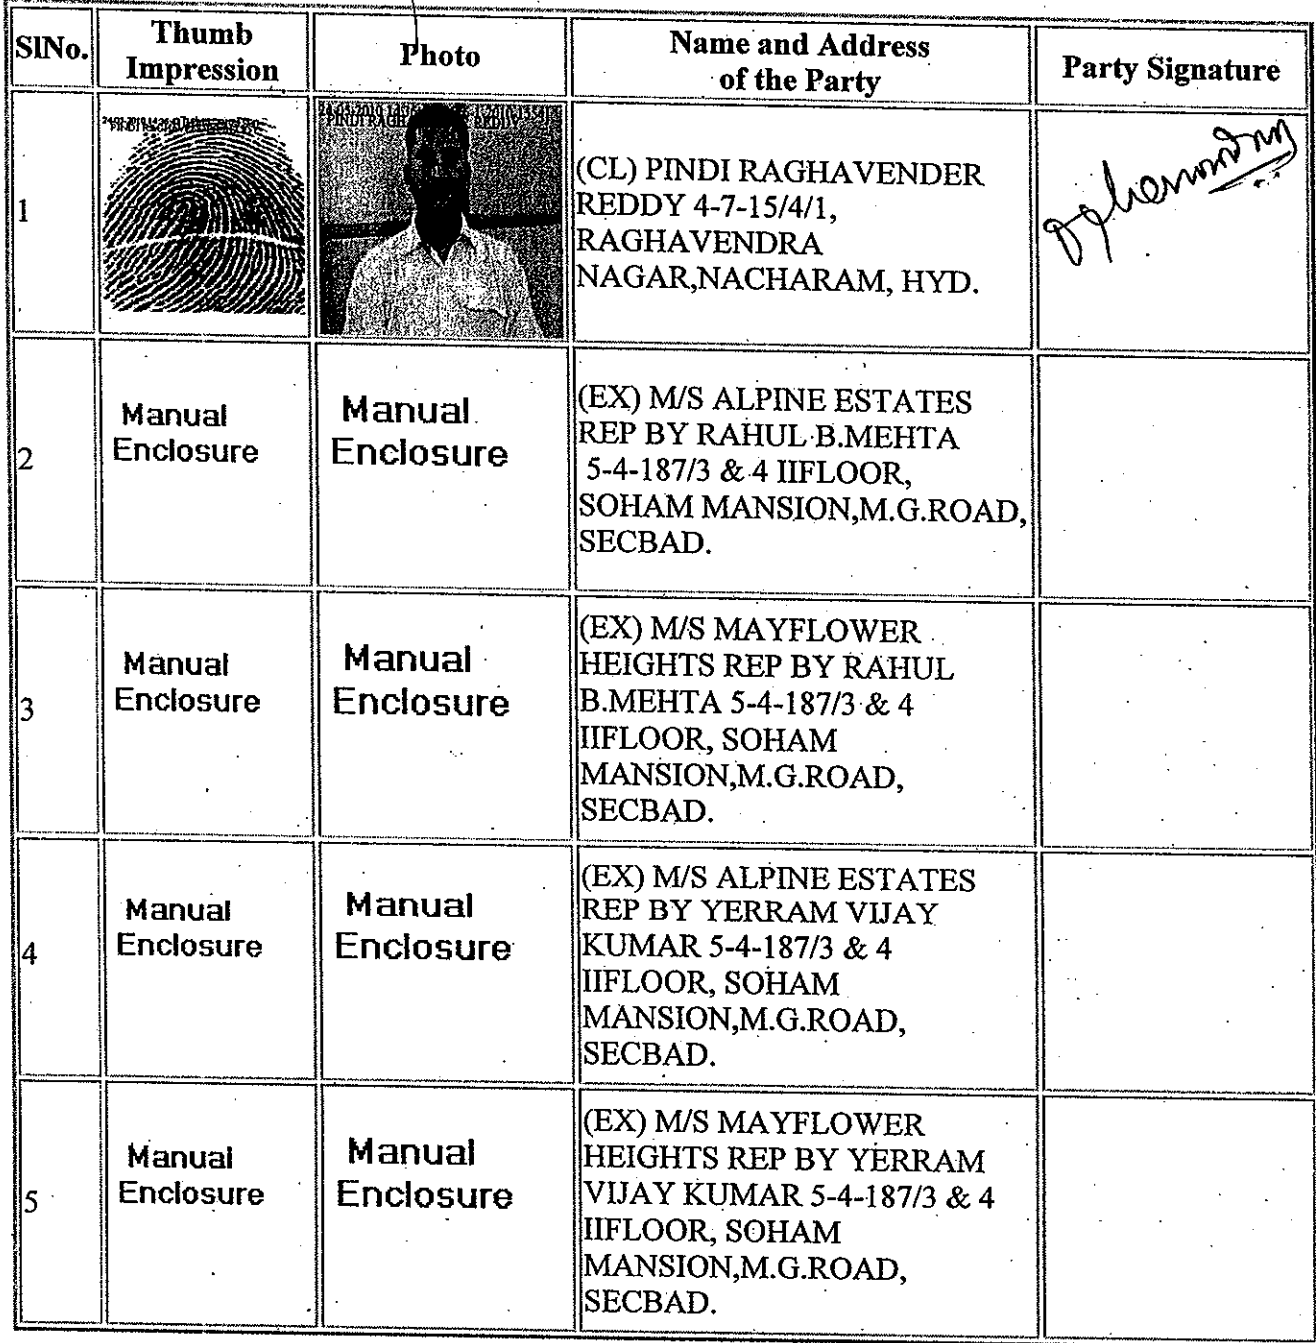 SlNo.
Thumb
Impression
Photo
Name and Address
of the Party
Party Signature
1
(CL) PINDI RAGHAVENDER
REDDY 4-7-15/4/1,
RAGHAVENDRA
NAGAR,NACHARAM, HYD.
2
Manual
Enclosure
Manual
Enclosure
(EX) M/S ALPINE ESTATES
REP BY RAHUL B.MEHTA
5-4-187/3 & 4 IIFLOOR,
SOHAM MANSION,M.G.ROAD,
SECBAD.
3
Manual
Enclosure
Manual
Enclosure
(EX) M/S MAYFLOWER
HEIGHTS REP BY RAHUL
B.MEHTA 5-4-187/3 & 4
IIFLOOR, SOHAM
MANSION,M.G.ROAD,
SECBAD.
4
Manual
Enclosure
Manual
Enclosure
(EX) M/S ALPINE ESTATES
REP BY YERRAM VIJAY
KUMAR 5-4-187/3 & 4
IIFLOOR, SOHAM
MANSION,M.G.ROAD,
SECBAD.
5
Manual
Enclosure
Manual
Enclosure
(EX) M/S MAYFLOWER
HEIGHTS REP BY YERRAM
VIJAY KUMAR 5-4-187/3 & 4
IIFLOOR, SOHAM
MANSION,M.G.ROAD,
SECBAD.